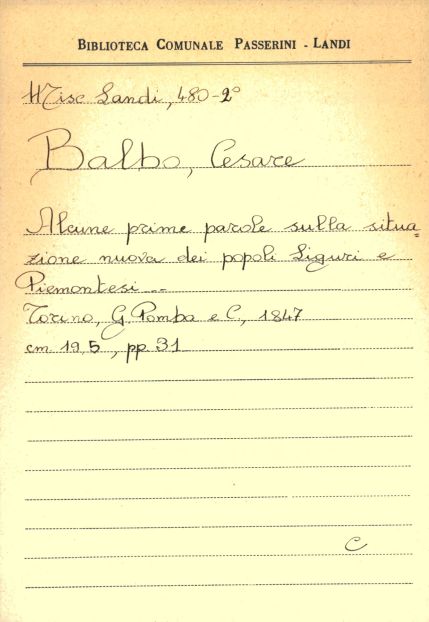 BIBLIOTECA COMUNALE PASSERINI - LANDI
Misc Landi, 480-2°
Balbo, Cesare
Alcune prime parole sulla situa=
zione nuova dei popoli Liguri e
Piemontesi ...
Torino, G. Pomba e C., 1847
cm 19,5, pp. 31
C